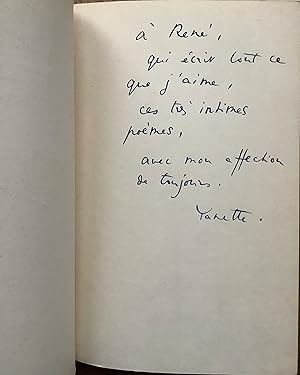 à René,
qui écrit tout ce
que j'aime,
ces très intimes
poèmes,
avec mon affection
de toujours.
Yanette.